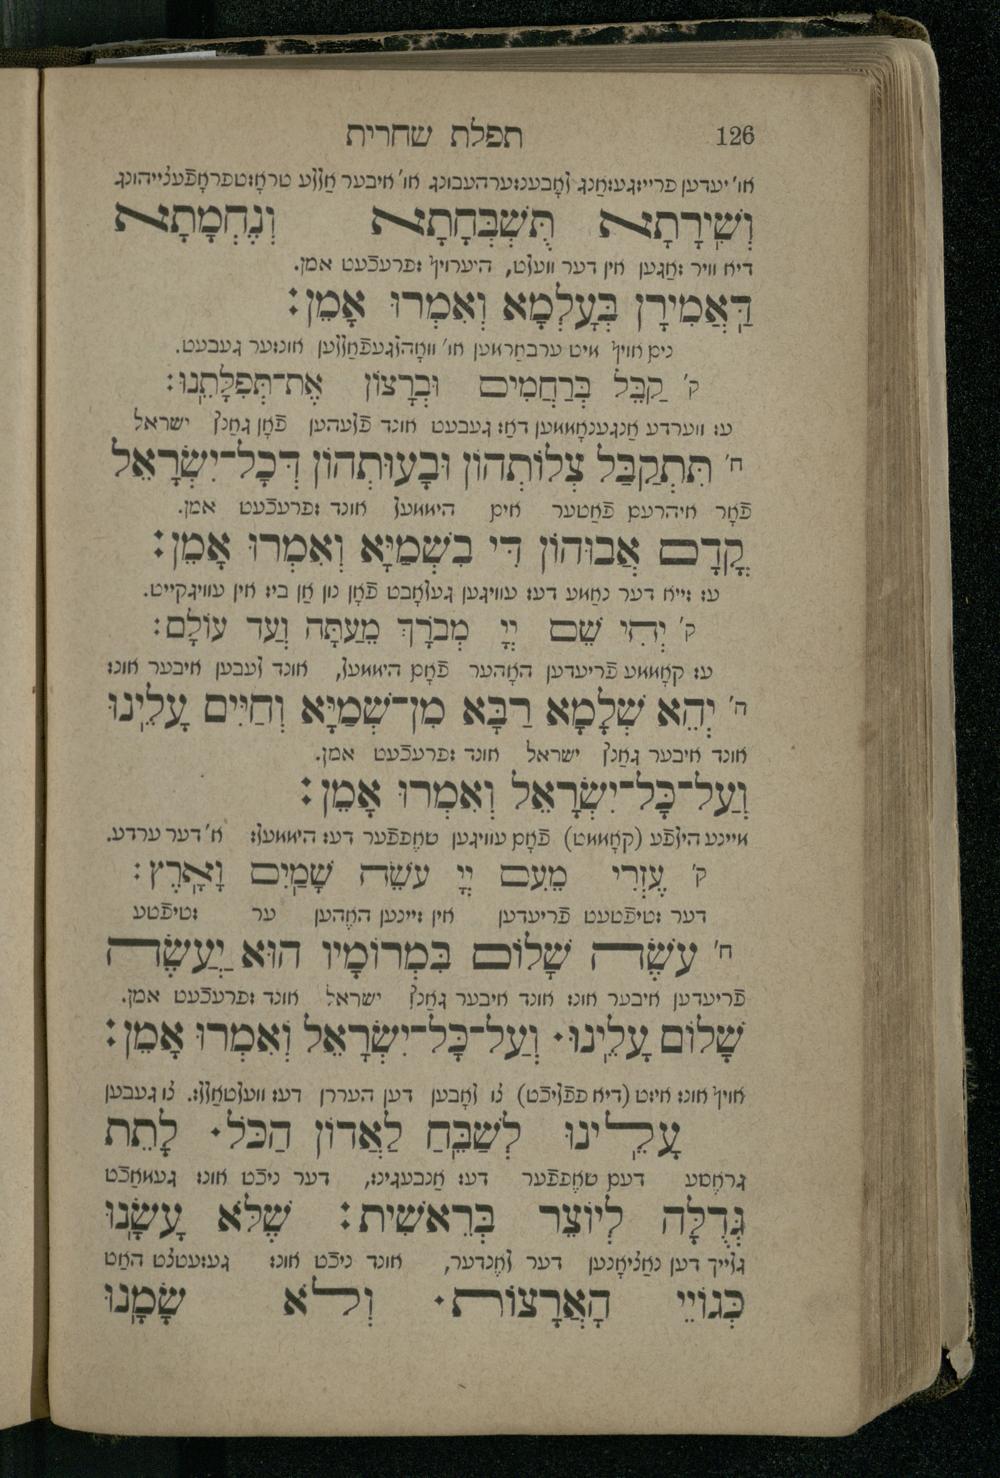 126 תפלת שחרית
או' יעדען פרייז:געזאַנג לאָבעסערהעבונג או' איבער אַללע טראָסטפראָפֿעצייהונג
וְשִׁירָתָא תֻּשְׁבְּחָתָא וְנֶחְמָתָא
דיא וויר זאַגען אין דער וועלט, היערויף שפרעכֿעט אמן.
דַּאֲמִירָן בְּעָלְמָא וְאִמְרוּ אָמֵן׃
נים אויף מיט ערבארמען או' וואָהלגעפֿאַללען אונזער געבעט.
ק' קַבֵּל בְּרַחֲמִים וּבְרָצוֹן אֶת־תְּפִלָּתֵנוּ׃
עס ווערדע אַנגענאָממען דאַס געבעט אונד פֿלעהען פֿאָן גאַנץ ישראל
ח' תִּתְקַבַּל צְלוֹתְהוֹן וּבָעוּתְהוֹן דְּכָל־יִשְׂרָאֵל
פֿאָר איהרעם פֿאַטער אים היממעל אונד שפרעכֿעט אמן.
קֳדָם אֲבוּהוֹן דִּי בִשְׁמַיָּא וְאִמְרוּ אָמֵן׃
עס זייא דער נאַמע דעס עוויגען געלאָבט פֿאָן נון אָן ביז אין עוויגקייט.
ק' יְהִי שֵׁם יְיָ מְבֹרָךְ מֵעַתָּה וְעַד עוֹלָם׃
עס קאָממע פֿריעדען האָהער פֿאָם היממעל, אונד לעבען איבער אונס
ה' יְהֵא שְׁלָמָא רַבָּא מִן־שְׁמַיָּא וְחַיִּים עָלֵינוּ
אונד איבער גאַנץ ישראל אונד שפרעכֿעט אמן.
וְעַל־כָּל־יִשְׂרָאֵל וְאִמְרוּ אָמֵן׃
מיינע הילפֿע (קאָממט) פֿאָם עוויגען שאֶפפֿער דעס היממעלס א' דער ערדע.
ק' עֶזְרִי מֵעִם יְיָ עֹשֵׂה שָׁמַיִם וָאָרֶץ׃
דער שטיפֿטעט פֿריעדען אין זיינען האֶהען ער שטיפֿטע
ח' עֹשֶׂה שָׁלוֹם בִּמְרוֹמָיו הוּא יַעֲשֶׂה
פֿריעדען איבער אונס אונד איבער גאַנץ ישראל אונד שפרעכֿעט אמן.
שָׁלוֹם עָלֵינוּ· וְעַל־כָּל־יִשְׂרָאֵל וְאִמְרוּ אָמֵן׃
אויף אונס איזט (דיא פפֿליכֿט) צו לאָבען דען העררן דעס וועלטאַללס. צו געבען
עָלֵינוּ לְשַׁבֵּחַ לַאֲדוֹן הַכֹּל· לָתֵת
גראֶסע דעם שאֶפפֿער דעס אַנבעגינס, דער ניכֿט אונס געמאַכֿט
גְּדֻלָּה לְיוֹצֵר בְּרֵאשִׁית׃ שֶׁלֹּא עָשָׂנוּ
גלייך דען נאַציאָנען דער לאֶנדער, אונד ניכֿט אונס געזעטצט האַט
כְּגוֹיֵי הָאֲרָצוֹת· וְלֹא שָׂמָנוּ